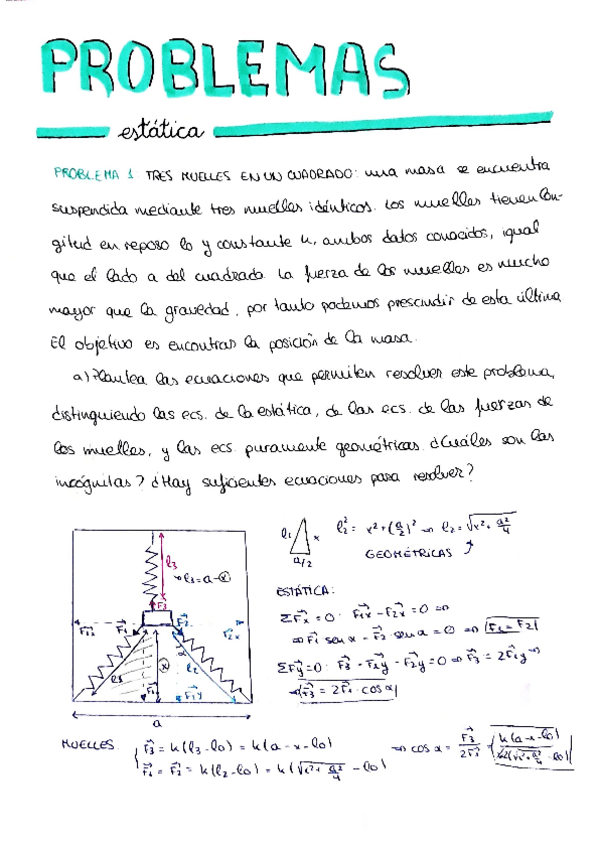 PROBLEMAS
estática
PROBLEMA 1 TRES MUELLES EN UN CUADRADO: una masa se encuentra
suspendida mediante tres muelles idénticos. Los muelles tienen lon-
gitud en reposo lo y constante k, ambos datos conocidos, igual
que el lado a del cuadrado. La fuerza de los muelles es mucho
mayor que la gravedad, por tanto podemos prescindir de esta última.
El objetivo es encontrar la posición de la masa.
a) Plantea las ecuaciones que permiten resolver este problema,
distinguiendo las ecs. de la estática, de las ecs. de las fuerzas de
los muelles, y las ecs. puramente geométricas. ¿Cuáles son las
incógnitas? ¿Hay suficientes ecuaciones para resolver?
l₁ x a/2 l₂² = x² + (a/2)² ⇝ l₂ = √x² + a²/4
GEOMÉTRICAS ↗
l₃
l₃ = a - x
ESTÁTICA:
F₃
ΣF⃗x = 0 : F₁x - F₂x = 0 ⇒
F₁x F₁ F₂ F₂x
⇒ F⃗₁ sen α - F⃗₂ sen α = 0 ⇒ F₁ = F₂
α
ΣF⃗y = 0 : F⃗₃ - F₂y - F₂y = 0 ⇒ F⃗₃ = 2F₁y
l₃ x l₂
F₁y F₂y
F⃗₃ = 2F₁ · cos α
a
MUELLES
F⃗₃ = k(l₃ - lo) = k(a - x - lo)
F⃗₁ = F⃗₂ = k(l₂ - lo) = k(√x² + a²/4 - lo)
⇝ cos α = F⃗₃/2F⃗₁ = k(a - x - lo)/k2(√x² + a²/4 - lo)